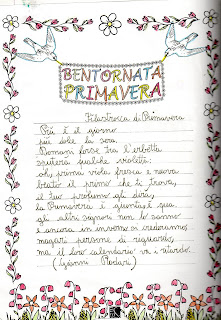 BENTORNATA
PRIMAVERA
Filastrocca di Primavera
Più è il giorno
più dolce la sera.
Domani forse tra l'erbetta
spunterà qualche violetta.
oh, prima viola fresca e nuova
beato il primo che ti trova,
il tuo profumo gli dirà,
la Primavera è giunta, è qua.
gli altri signori non lo sanno
e ancora in inverno si crederanno,
magari persone di riguardo,
ma il loro calendario va in ritardo.
(Gianni Rodari)